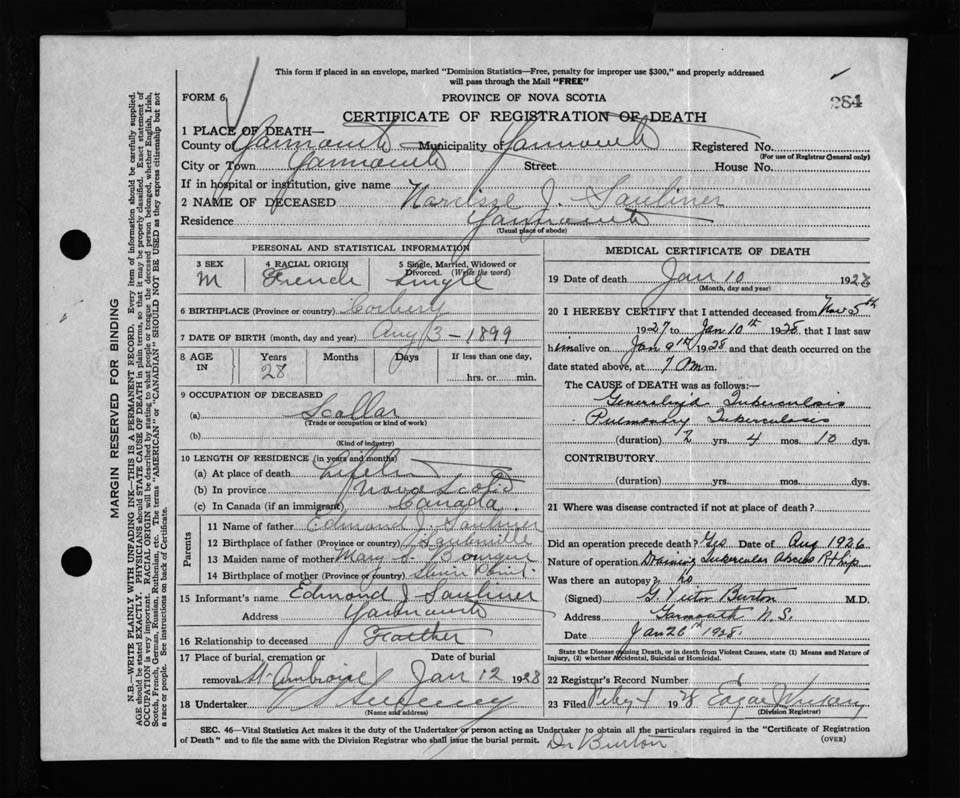 This form if placed in an envelope, marked "Dominion Statistics—Free, penalty for improper use $300," and properly addressed
will pass through the Mail "FREE"
FORM 6
PROVINCE OF NOVA SCOTIA
284
CERTIFICATE OF REGISTRATION OF DEATH
1 PLACE OF DEATH—
County of Yarmouth Municipality of Yarmouth Registered No.
(For use of Registrar General only)
City or Town Yarmouth Street House No.
If in hospital or institution, give name
2 NAME OF DECEASED Narcisse J. Saulnier
Residence Yarmouth
(Usual place of abode)
PERSONAL AND STATISTICAL INFORMATION
3 SEX M
4 RACIAL ORIGIN French
5 Single, Married, Widowed or Divorced. (Write the word) Single
6 BIRTHPLACE (Province or country)
7 DATE OF BIRTH (month, day and year) Aug 3 - 1899
8 AGE IN Years 28 Months Days If less than one day, hrs. or min.
9 OCCUPATION OF DECEASED
(a) Scollar
(Trade or occupation or kind of work)
(b)
(Kind of industry)
10 LENGTH OF RESIDENCE (in years and months)
(a) At place of death
(b) In province Nova Scotia
(c) In Canada (if an immigrant) Canada.
Parents
11 Name of father Edmond J. Saulnier
12 Birthplace of father (Province or country)
13 Maiden name of mother Mary J.
14 Birthplace of mother (Province or country)
15 Informant's name Edmond J Saulnier
Address Yarmouth
16 Relationship to deceased Feather
17 Place of burial, cremation or removal St Ambroise Date of burial Jan 12 1928
18 Undertaker V S Sweeney
(Name and address)
MEDICAL CERTIFICATE OF DEATH
19 Date of death Jan 10 1928
(Month, day and year)
20 I HEREBY CERTIFY that I attended deceased from Nov 5th
1927 to Jan 10th 1928 that I last saw
him alive on Jan 9th 1928 and that death occurred on the
date stated above, at 7 P.m.
The CAUSE of DEATH was as follows:—
Generalized Tuberculosis
Pulmonary Tuberculosis
(duration) 2 yrs. 4 mos. 10 dys.
CONTRIBUTORY.
(duration) yrs. mos. dys.
21 Where was disease contracted if not at place of death?
Did an operation precede death? Yes Date of Aug 1926
Nature of operation Draining Tubercular Abscess Rt Hip
Was there an autopsy? no
(Signed) G. Victor Burton M.D.
Address Yarmouth N.S.
Date Jan 26th 1928.
State the Disease causing Death, or in death from Violent Causes, state (1) Means and Nature of
Injury, (2) whether Accidental, Suicidal or Homicidal.
22 Registrar's Record Number
23 Filed Feby 4 1928 Edgar
(Division Registrar)
SEC. 46—Vital Statistics Act makes it the duty of the Undertaker or person acting as Undertaker to obtain all the particulars required in the "Certificate of Registration
of Death" and to file the same with the Division Registrar who shall issue the burial permit. Dr Burton (OVER)
MARGIN RESERVED FOR BINDING
N.B.—WRITE PLAINLY WITH UNFADING INK—THIS IS A PERMANENT RECORD. Every item of information should be carefully supplied.
AGE should be stated EXACTLY. PHYSICIANS should STATE CAUSE OF DEATH in plain terms, so that it may be properly classified. Exact statement of
OCCUPATION is very important. RACIAL ORIGIN will be described by stating to what people or tongue the deceased person belonged, whether English, Irish,
Scotch, French, German, Russian, Ruthenian, etc. The terms "AMERICAN" or "CANADIAN" SHOULD NOT BE USED as they express citizenship but not
a race or people. See instructions on back of Certificate.